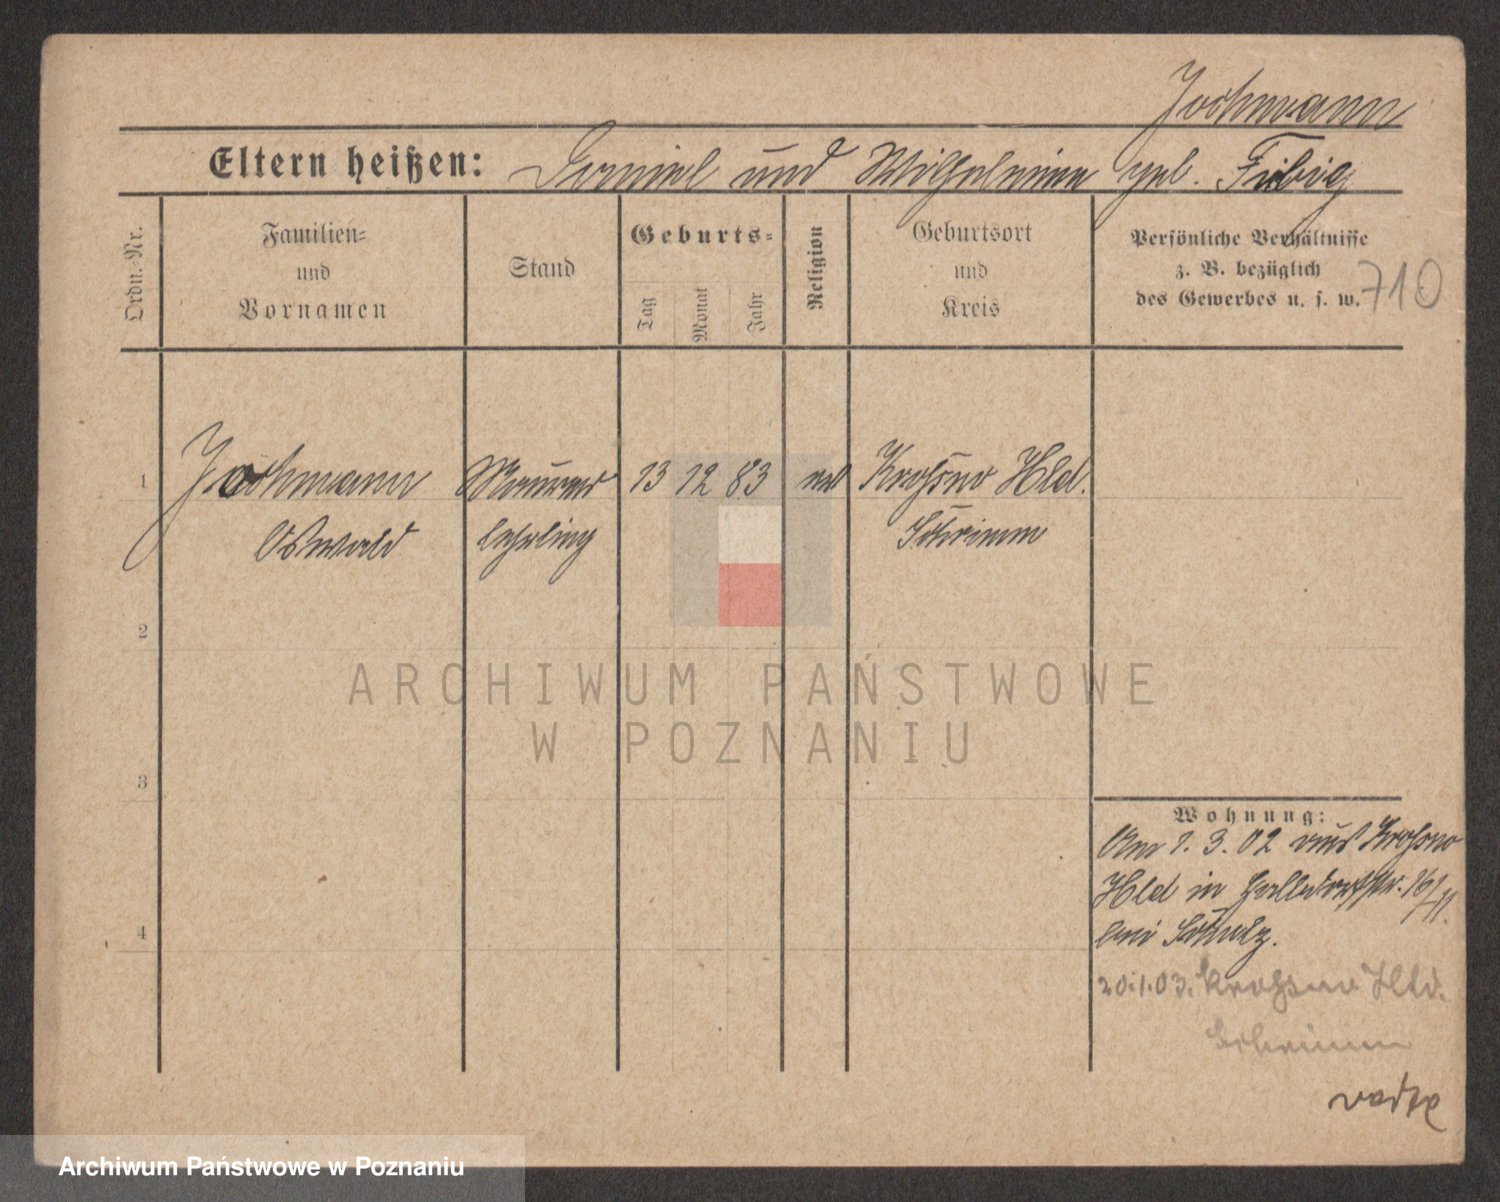 Jochmann
Eltern heißen: Daniel und Wilhelmine geb. Fiebig
Ordn.-Nr.
Familien-
und
Vornamen
Stand
Geburts-
Tag
Monat
Jahr
Religion
Geburtsort
und
Kreis
Persönliche Verhältnisse
z. B. bezüglich
des Gewerbes u. s. w.
710
1 Jochmann Maurer 13 12 83 Kroſsno Hld.
Oswald lehrling Schrimm
2
3
4
Wohnung:
Am 1. 3. 02 aus Kroſsno
Hld in
bei Schulz.
20.1.03. Kroſsno Hld.
Schrimm
ARCHIWUM PAŃSTWOWE
W POZNANIU
Archiwum Państwowe w Poznaniu